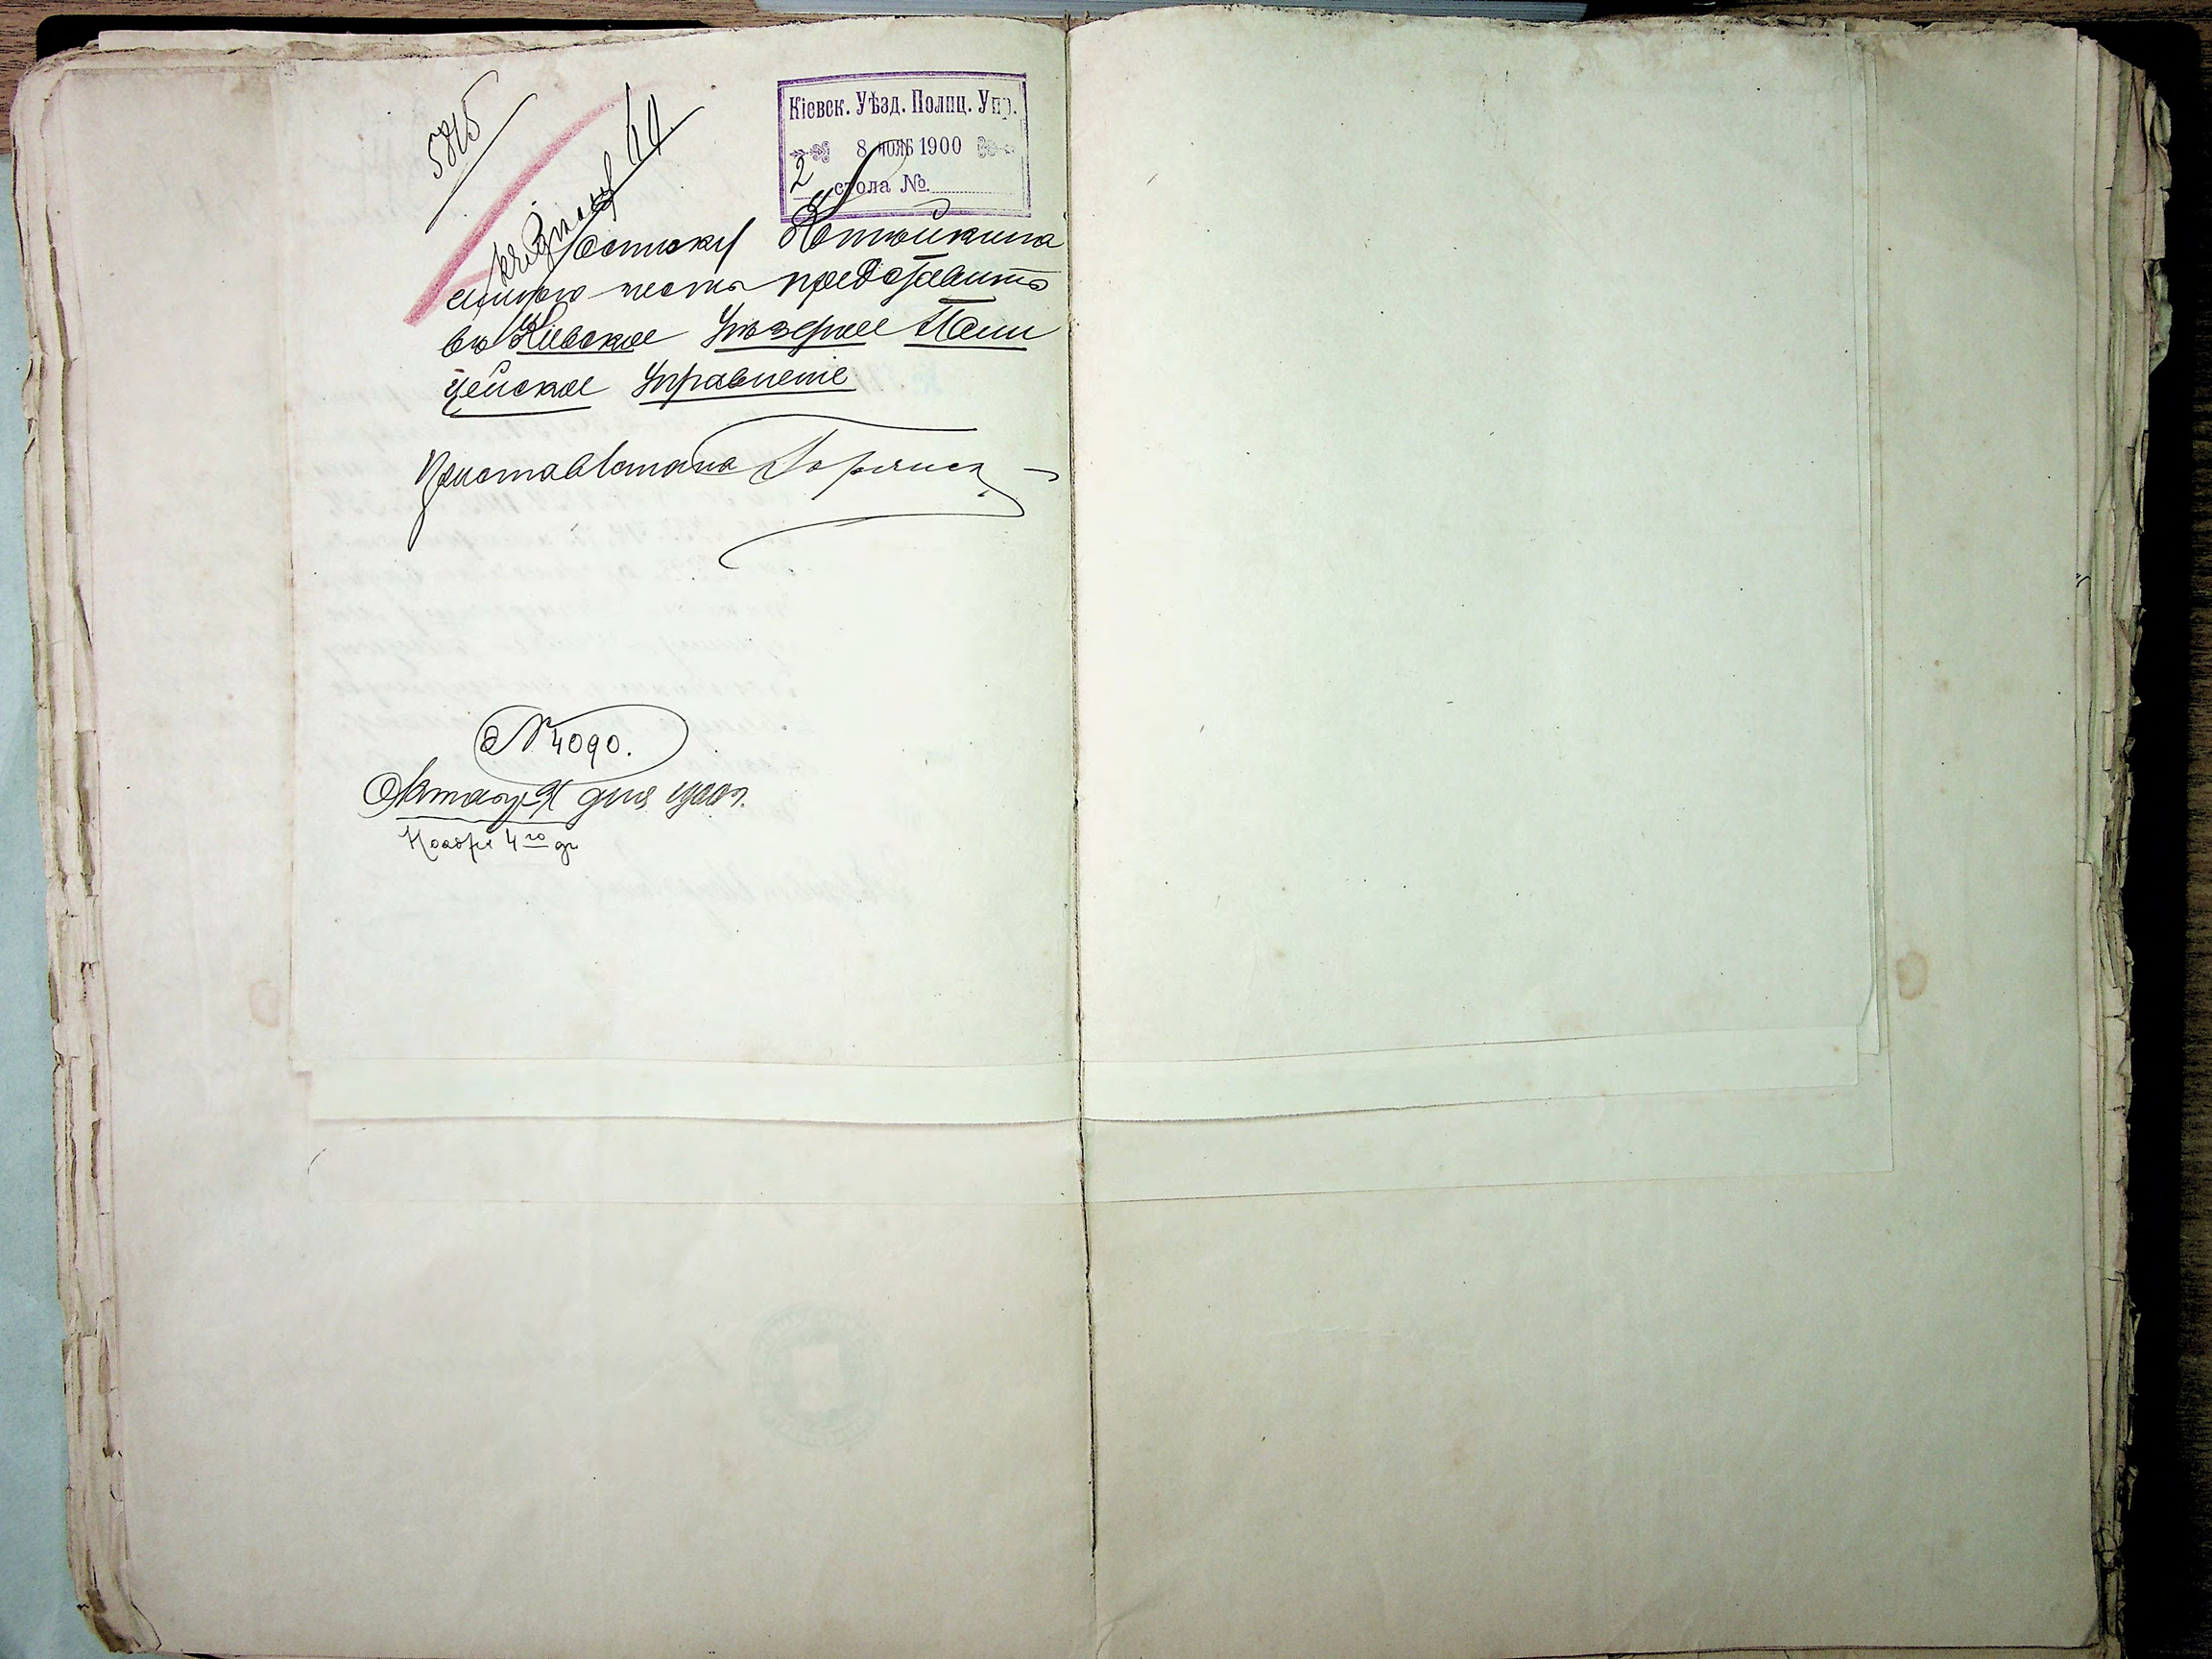 5815
Кіевск. Уѣзд. Полиц. Упр.
8 нояб 1900
2 стола №
Росписку Хотѣйкина
честь представить
въ Кіевское Уѣздное Поли
цейское Управленіе
Приставъ стана
№ 4090.
Октября дня 1900 г.
Ноября 4го дн